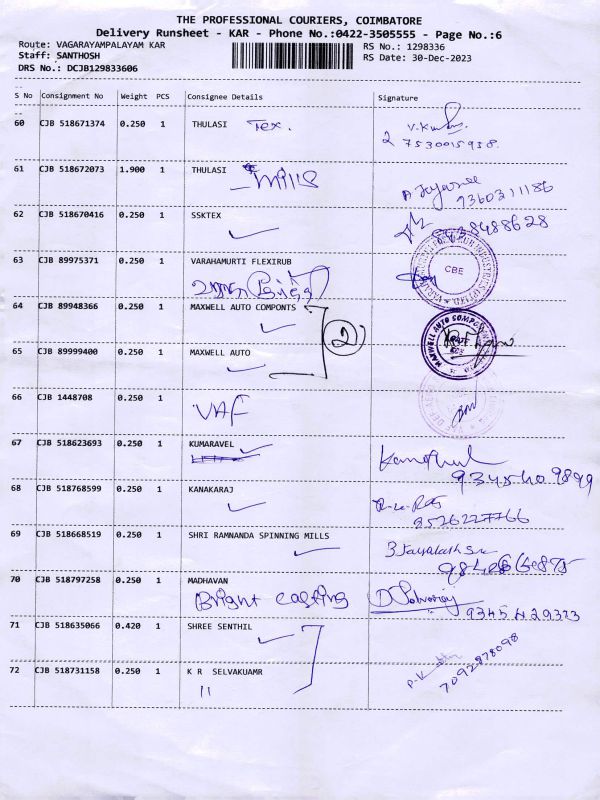 THE PROFESSIONAL COURIERS, COIMBATORE
Delivery Runsheet - KAR - Phone No.:0422-3505555 - Page No.:6
Route: VAGARAYAMPALAYAM KAR RS No.: 1298336
Staff: SANTHOSH RS Date: 30-Dec-2023
DRS No.: DCJB129833606
S No Consignment No Weight PCS Consignee Details Signature
60 CJB 518671374 0.250 1 THULASI Tex.
7530015938
61 CJB 518672073 1.900 1 THULASI Mills
9360311186
62 CJB 518670416 0.250 1 SSKTEX
63 CJB 89975371 0.250 1 VARAHAMURTI FLEXIRUB
CBE
64 CJB 89948366 0.250 1 MAXWELL AUTO COMPONTS
2
MAXWELL AUTO
65 CJB 89999400 0.250 1 MAXWELL AUTO
66 CJB 1448708 0.250 1
VAF
67 CJB 518623693 0.250 1 KUMARAVEL
68 CJB 518768599 0.250 1 KANAKARAJ
9526227766
69 CJB 518668519 0.250 1 SHRI RAMNANDA SPINNING MILLS
70 CJB 518797258 0.250 1 MADHAVAN
Bright casting
71 CJB 518635066 0.420 1 SHREE SENTHIL
72 CJB 518731158 0.250 1 K R SELVAKUAMR
11
7092878098